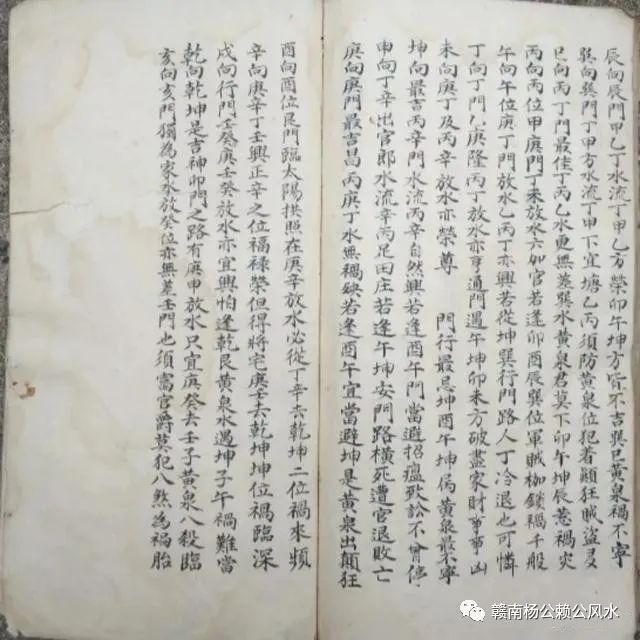 辰向辰門甲乙丁水流丁甲乙方榮卯午坤方官不吉巽巳黃泉禍不寧
巽向巽門丁甲方水流丁甲下宜塘乙丙須防黃泉位犯着顛狂賊盜多
巳向丙丁門最佳丁丙乙水更無差巽水黃泉君莫下卯午坤辰惹禍災
丙向丙位甲庚門丁未放水六如官若逢卯酉辰巽位軍賊枷鎖禍千般
午向午位庚丁門放水乙丙丁亦興若從坤巽行門路人丁冷退也可憐
丁向丁門庚隆丙丁放水亦亨通門遇午坤卯未方破盡家財事事凶
未向庚丁及丙辛放水亦榮尊 門行最忌坤酉午坤局黃泉最不寧
坤向最吉丙辛門水流丙辛自然興若逢酉午門當避招瘟致訟不會停
申向丁辛出官郎水流辛丙足田庄若逢午坤安門路橫死遭官退敗亡
庚向庚門最吉昌丙庚丁水無禍缺若逢酉午宜當避坤是黃泉出顛狂
酉向酉位艮門臨太陽拱照在庚辛放水必從丁辛去乾坤二位禍來頻
辛向庚辛丁壬興正辛之位福祿榮但得將宅庚壬去乾坤坤位禍臨深
戌向行門壬癸庚壬癸放水亦宜興怕逢乾艮黃泉水遇坤子午禍難當
乾向乾坤是吉神卯門之路有庚甲放水只宜庚癸去壬子黃泉八殺臨
亥向亥門獨為家水放癸位亦無差壬門也須當官爵莫犯八煞為禍胎
赣南杨公赖公风水